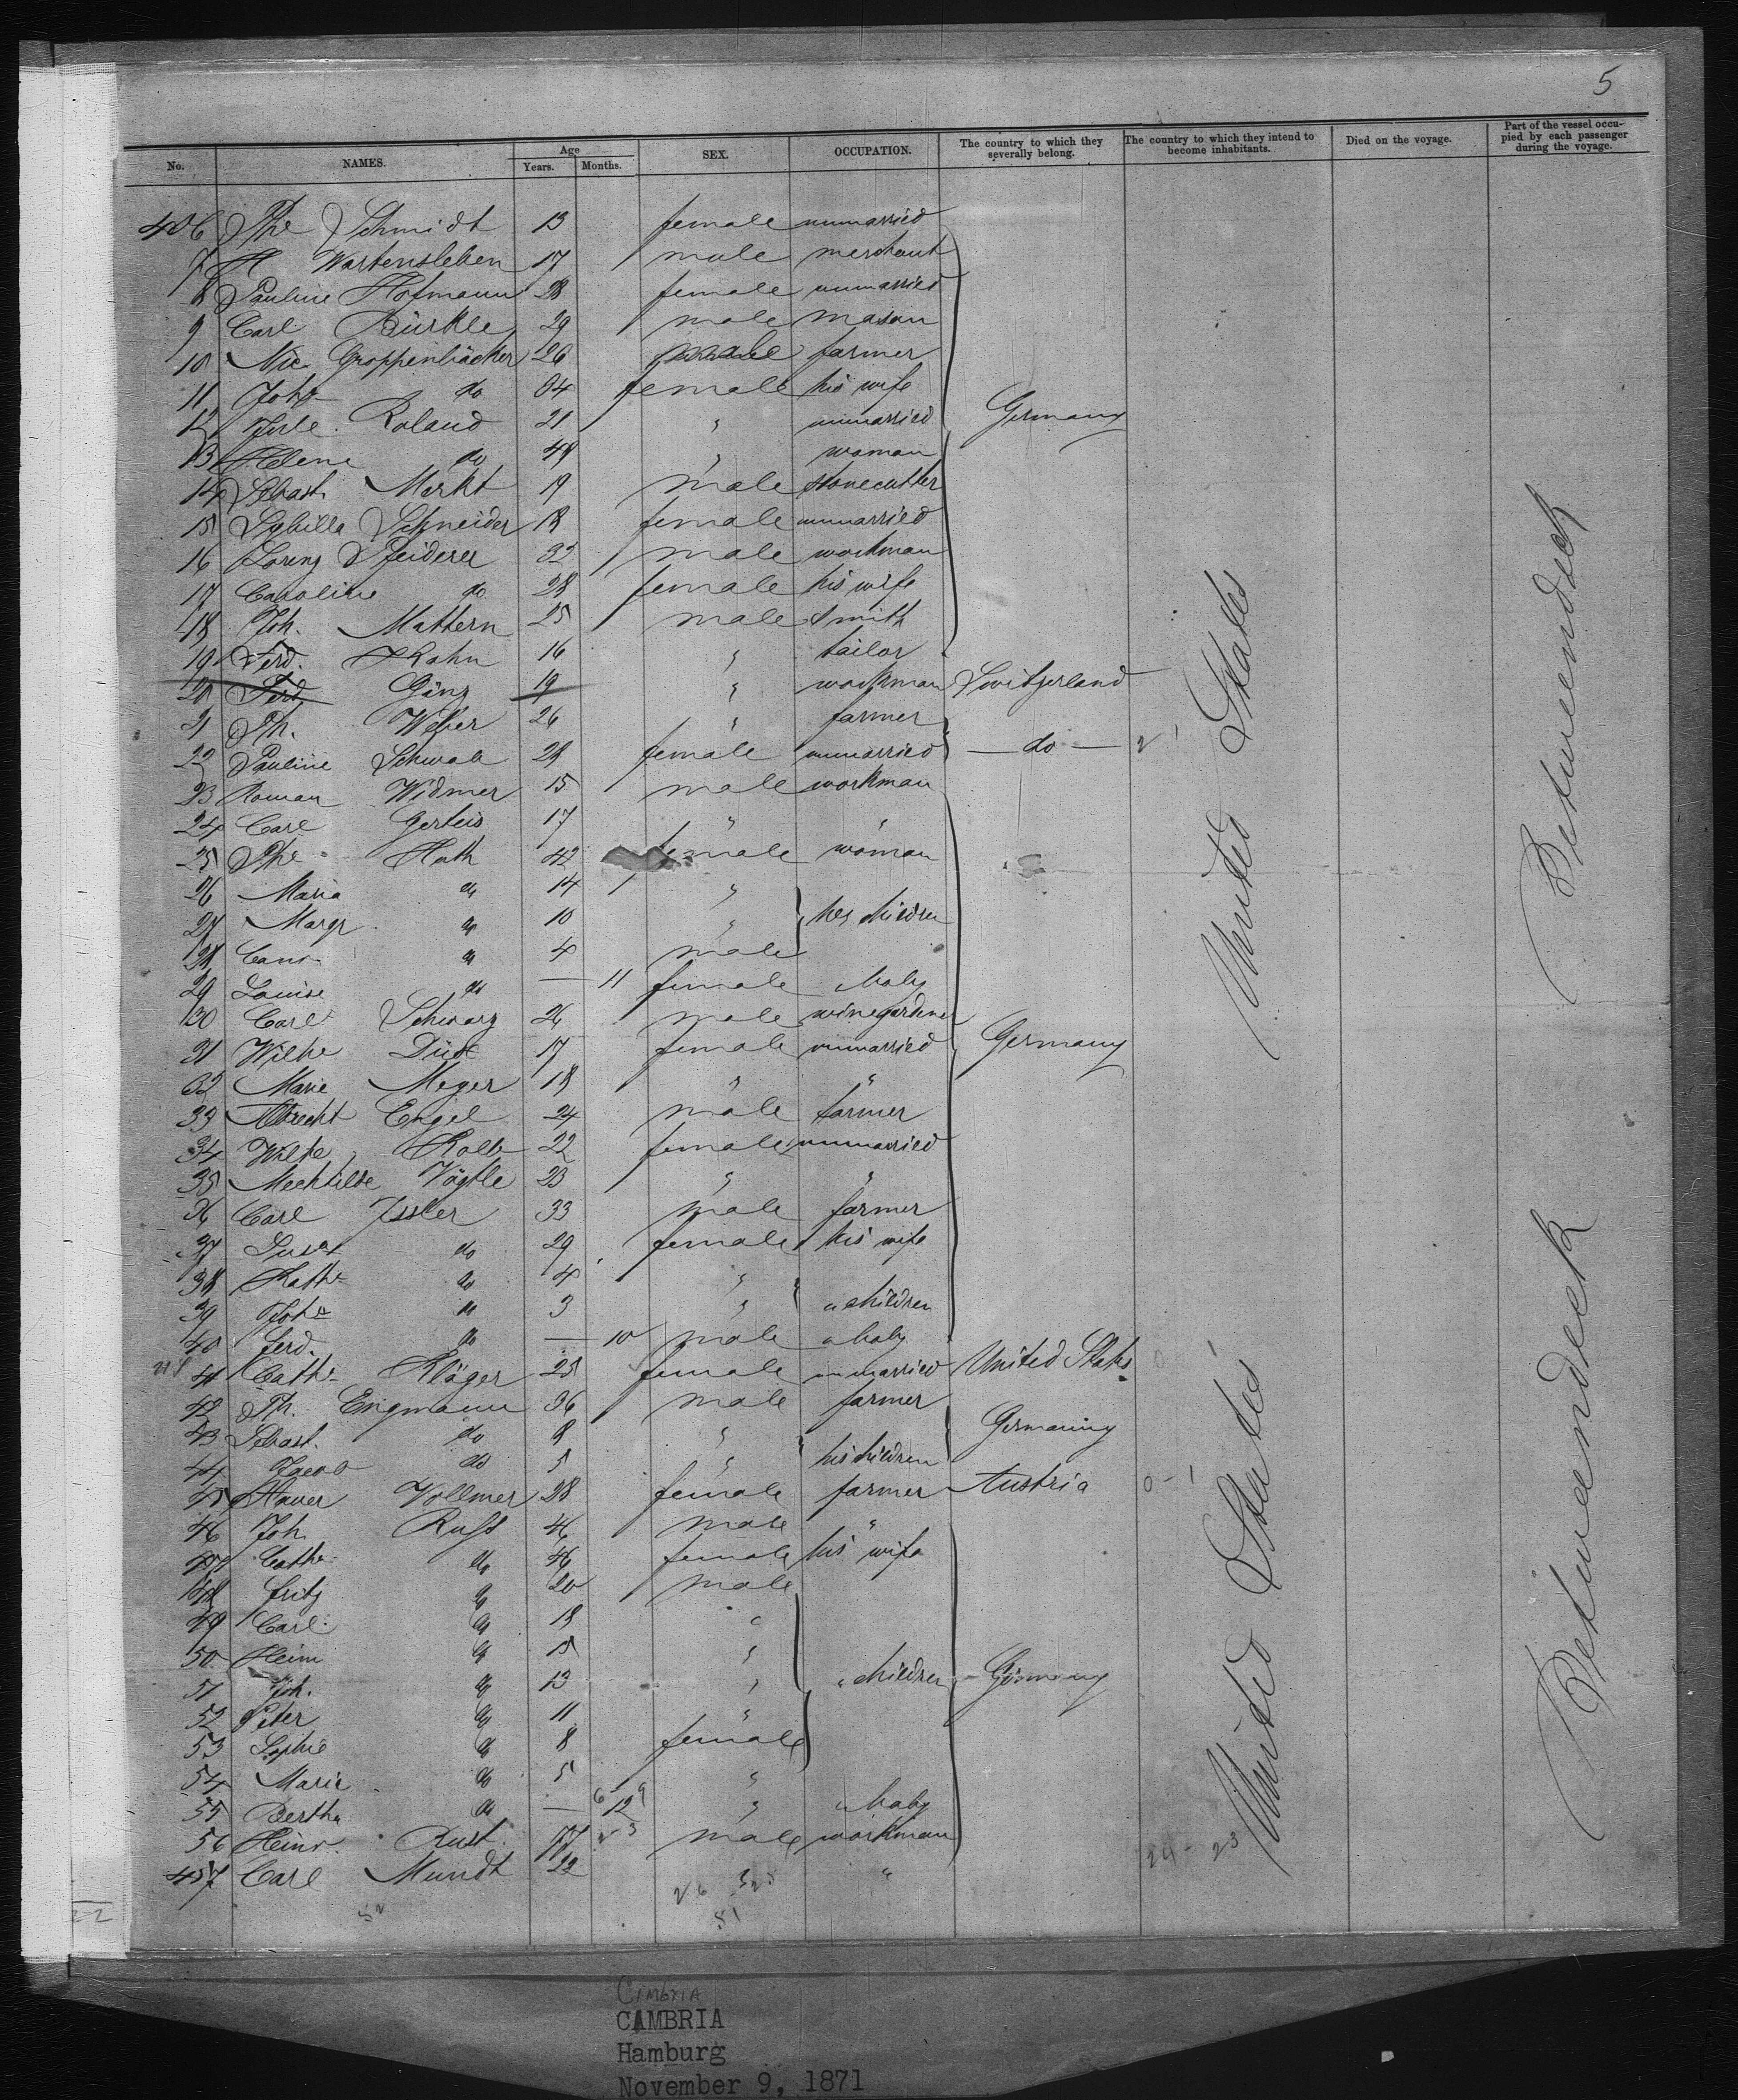 5
No. NAMES. Age Years. Months. SEX. OCCUPATION. The country to which they severally belong. The country to which they intend to become inhabitants. Died on the voyage. Part of the vessel occupied by each passenger during the voyage.
406 Phe Schmidt 13 female unmarried
7 A Wartensleben 17 male merchant
8 Pauline Hofmann 28 female unmarried
9 Carl Bürkle 29 male mason
10 Nic Groppenbächer 26 male farmer
11 Joha do 24 female his wife
12 Roland 21 " unmarried Germany
13 Helene do 49 " woman
14 Sebast. Merkt 19 male stonecutter
15 Sybilla Schneider 18 female unmarried
16 Lorenz Pfeiderer 32 male workman
17 Caroline do 28 female his wife
18 Joh. Mattern 25 male smith
19 Ferd. Krahn 16 " tailor
20 Ferd Gönz 19 " workman Switzerland
21 Ph. Weber 26 " farmer
22 Pauline Schwab 28 female unmarried — do —
23 Roman Widmer 15 male workman
24 Carl Gerteis 17 " "
25 Phe Huth 42 female woman
26 Maria do 14 "
27 Margr do 10 " her children
28 do 4 male
29 Louise do — 11 female baby
30 Carl Schwarz 26 male winegardener
31 Wilhe Düst 17 female unmarried Germany
32 Marie Meyer 18 " "
33 Albrecht Engel 24 male farmer
34 Wilhe Kolb 22 female unmarried
35 Mechtilde Vögtle 23 " "
36 Carl Issler 33 male farmer
37 Susa do 29 female his wife
38 Kathe do 4 "
39 Joha do 3 " " children
40 Ferd. do — 10 male " baby
41 Cathe Kläger 25 female unmarried United States
42 Ph. Engmann 36 male farmer
43 Sebast. do 8 " Germany
44 Jacob do 5 " his children
45 Xaver Vollmer 28 female farmer Austria
46 Joh. Russ 46 male "
47 Cathe do 46 female his wife
48 Fritz do 20 male
49 Carl do 18 "
50 Heinr do 15 "
51 Joh. do 13 " " children Germany
52 Peter do 11 "
53 Sophie do 8 female
54 Marie do 5 "
55 Bertha do — " " baby
56 Heinr. Rust 17 male workman
457 Carl Mundt 22 " "
United States
Betweendeck
United States
Betweendeck
24 - 23
CIMBRIA
CAMBRIA
Hamburg
November 9, 1871